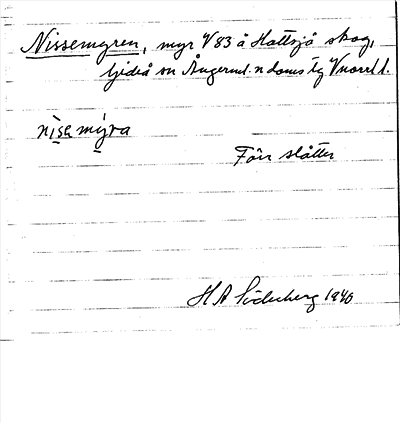 Nissemyren, myr V 83 å Hattsjö skog,
Gideå sn Ångerml. n doms tg Vnorrl l.
nisemyra
Förr slåtter
H A Söderberg 1940